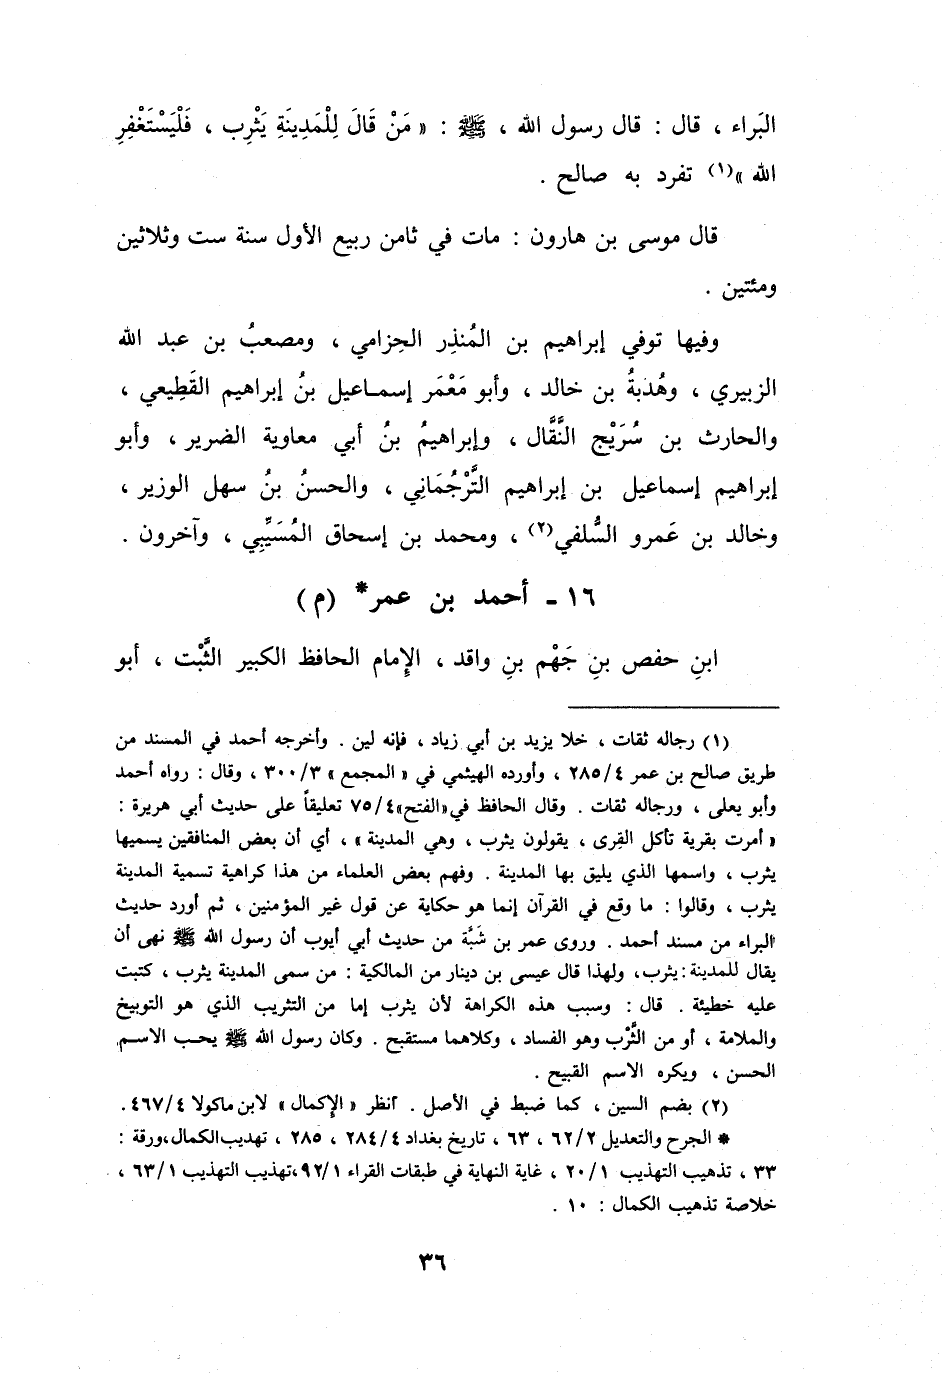 البَراء ، قال : قال رسول الله ، ﷺ : « مَنْ قَالَ لِلْمَدِينَةِ يَثْرِب ، فَلْيَسْتَغْفِرِ
الله »(١) تفرد به صالح .
قال موسى بن هارون : مات في ثامن ربيع الأول سنة ست وثلاثين
ومئتين .
وفيها توفي إبراهيم بن المُنذِر الحِزامي ، ومصعبُ بن عبد الله
الزبيري ، وهُدبةُ بن خالد ، وأبو مَعْمَر إسماعيل بنُ إبراهيم القَطِيعي ،
والحارث بن سُرَيْج النَّقَّال ، وإبراهيمُ بنُ أبي معاوية الضرير ، وأبو
إبراهيم إسماعيل بن إبراهيم التَّرْجُمَانِي ، والحسنُ بنُ سهل الوزير ،
وخالد بن عَمرو السُّلفي(٢) ، ومحمد بن إسحاق المُسَيِّبِي ، وآخرون .
١٦ ـ أحمد بن عمر* (م)
ابنِ حفص بنِ جَهْم بنِ واقد ، الإِمام الحافظ الكبير الثَّبْت ، أبو
(١) رجاله ثقات ، خلا يزيد بن أبي زياد ، فإنه لين . وأخرجه أحمد في المسند من
طريق صالح بن عمر ٢٨٥/٤ ، وأورده الهيثمي في « المجمع » ٣٠٠/٣ ، وقال : رواه أحمد
وأبو يعلى ، ورجاله ثقات . وقال الحافظ في «الفتح» ٧٥/٤ تعليقاً على حديث أبي هريرة :
« أمرت بقرية تأكل القِرى ، يقولون يثرب ، وهي المدينة » ، أي أن بعض المنافقين يسميها
يثرب ، واسمها الذي يليق بها المدينة . وفهم بعض العلماء من هذا كراهية تسمية المدينة
يثرب ، وقالوا : ما وقع في القرآن إنما هو حكاية عن قول غير المؤمنين ، ثم أورد حديث
البراء من مسند أحمد . وروى عمر بن شَبَّة من حديث أبي أيوب أن رسول الله ﷺ نهى أن
يقال للمدينة : يثرب ، ولهذا قال عيسى بن دينار من المالكية : من سمى المدينة يثرب ، كتبت
عليه خطيئة . قال : وسبب هذه الكراهة لأن يثرب إما من التثريب الذي هو التوبيخ
والملامة ، أو من الثَّرْب وهو الفساد ، وكلاهما مستقبح . وكان رسول الله ﷺ يحب الاسم
الحسن ، ويكره الاسم القبيح .
(٢) بضم السين ، كما ضبط في الأصل . انظر « الإكمال » لابن ماكولا ٤٦٧/٤ .
* الجرح والتعديل ٦٢/٢ ، ٦٣ ، تاريخ بغداد ٢٨٤/٤ ، ٢٨٥ ، تهذيب الكمال ، ورقة :
٣٣ ، تذهيب التهذيب ٢٠/١ ، غاية النهاية في طبقات القراء ٩٢/١ ، تهذيب التهذيب ٦٣/١ ،
خلاصة تذهيب الكمال : ١٠ .
٣٦